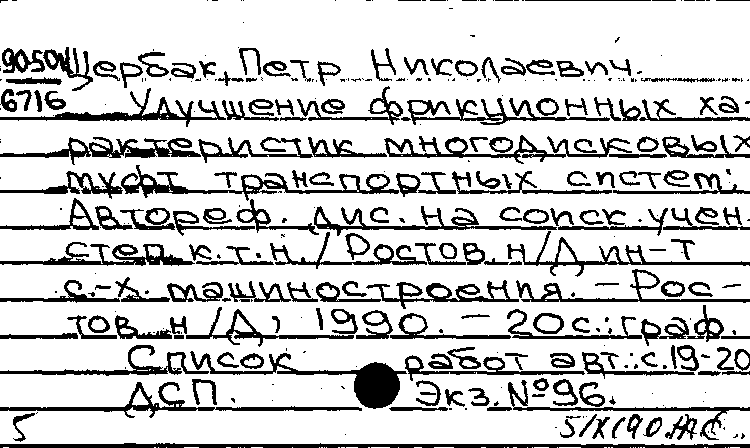 Щербак, Петр Николаевич.
6716 Улучшение фрикционных ха-
рактеристик многодисковых
муфт транспортных систем:
Автореф. дис. на соиск. учен.
степ. к.т.н. / Ростов. н/Д ин-т
с.-х. машиностроения. – Рос-
тов н/Д, 1990. – 20 с.: граф.
Список работ авт.: с.19-20
ДСП. Экз. №96.
5